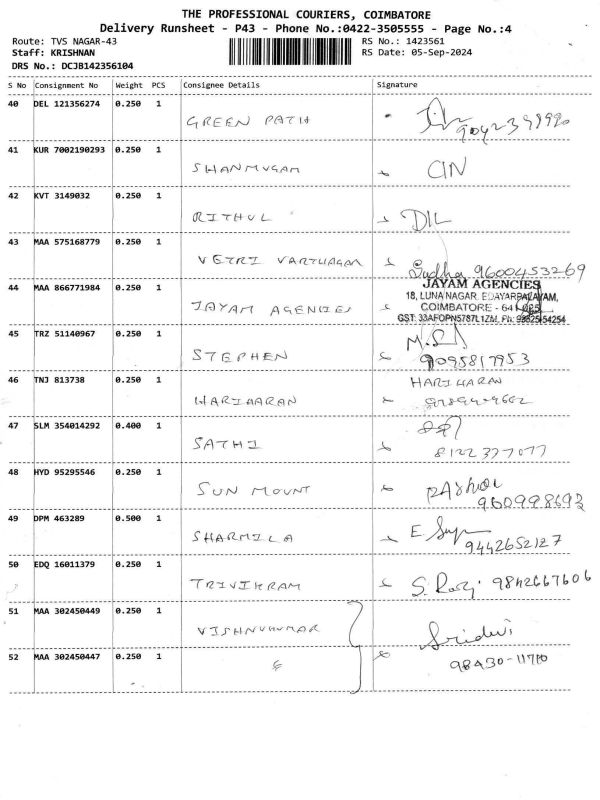 THE PROFESSIONAL COURIERS, COIMBATORE
Delivery Runsheet - P43 - Phone No.:0422-3505555 - Page No.:4
Route: TVS NAGAR-43 RS No.: 1423561
Staff: KRISHNAN RS Date: 05-Sep-2024
DRS No.: DCJB142356104
S No Consignment No Weight PCS Consignee Details Signature
40 DEL 121356274 0.250 1
GREEN PATH
41 KUR 7002190293 0.250 1
SHANMUGAM CIN
42 KVT 3149032 0.250 1
RITHUL DIL
43 MAA 575168779 0.250 1
VETRI VARTHAGAM Sudha 9600453269
44 MAA 866771984 0.250 1 JAYAM AGENCIES
18, LUNA NAGAR, EDAYARPALAYAM,
JAYAM AGENCIES COIMBATORE - 641 025
GST: 33AFOPN5787L1ZM, Ph:
45 TRZ 51140967 0.250 1 M.S
STEPHEN 9095817953
46 TNJ 813738 0.250 1 HARIHARAN
HARIHARAN
47 SLM 354014292 0.400 1
SATHI 8122377077
48 HYD 95295546 0.250 1
SUN MOUNT 960998693
49 DPM 463289 0.500 1
SHARMILA E 9442652127
50 EDQ 16011379 0.250 1
TRIVIKRAM S. 9842667606
51 MAA 302450449 0.250 1
VISHNUKUMAR Sridevi
52 MAA 302450447 0.250 1
98430-11710